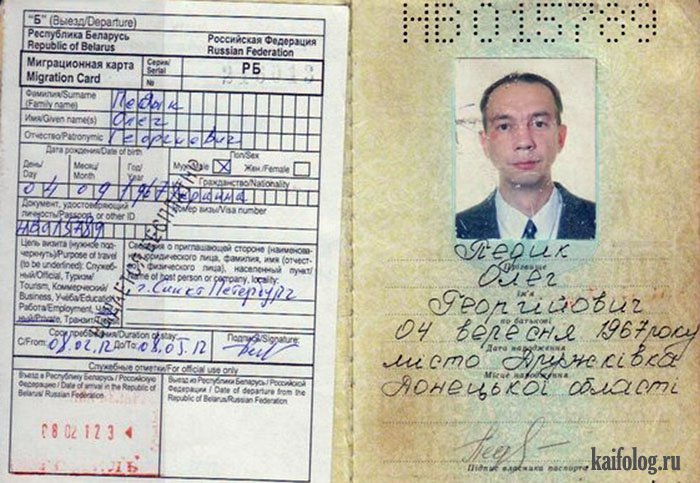 "Б" (Выезд/Departure)
Республика Беларусь
Republic of Belarus
Российская Федерация
Russian Federation
Миграционная карта
Migration Card
Серия/
Serial
РБ
№
Фамилия/Surname
(Family name)
Педык
Имя/Given name(s)
Олег
Отчество/Patronymic
Георгиевич
Дата рождения/Date of birth
Пол/Sex
День/
Day
Месяц/
Month
Год/
Year
Муж./Male
X
Жен./Female
Гражданство/Nationality
04 09 1967 Украина
Документ, удостоверяющий
личность/Passport or other ID
Номер визы/Visa number
НВ015789
Цель визита (нужное под-
черкнуть)/Purpose of travel
(to be underlined): Служеб-
ный/Official, Туризм/
Tourism, Коммерческий/
Business, Учеба/Education,
Работа/Employment, Част-
ный/Private, Транзит/Transit
Сведения о приглашающей стороне (наименова-
ние юридического лица, фамилия, имя, (отчест-
во) физического лица), населенный пункт/
Name of host person or company, locality:
г. Санкт Петербург
Срок пребывания/Duration of stay:
Подпись/Signature:
С/From: 08.02.12 До/To: 08.05.12
Служебные отметки/For official use only
Въезд в Республику Беларусь / Российскую
Федерацию / Date of arrival in the Republic of
Belarus/ Russian Federation
Выезд из Республики Беларусь / Российской
Федерации / Date of departure from the Republic of
Belarus/ Russian Federation
08 02 12 3
НВ015789
Педик
Прізвище
Олег
ім'я
Георгійович
по батькові
04 вересня 1967 року
Дата народження
місто Дружківка
Місце народження
Донецької області
Підпис власника паспорта
kaifolog.ru